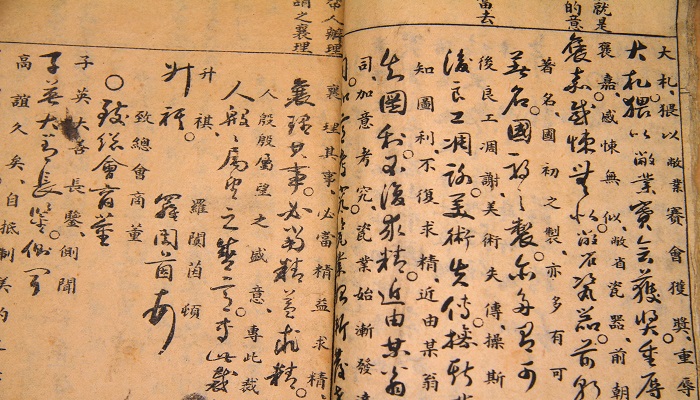 就是
的意
當去
大札、猥以敝業賽會獲獎、重辱
大札猥以敝業賽會獲獎重辱
褒嘉、感悚無似、敝省瓷器、前朝
褒嘉感悚無似敝省瓷器前朝
著名、國初之製、亦多有可
著名國初之製亦多有可
後良工凋謝、美術失傳、操斯
後良工凋謝美術失傳操斯
知圖利、不復求精、近由某翁
知圖利不復求精近由某翁
司、加意考究、瓷業始漸發達
帝人辦理
謂之襄理
襄理其事、必當精益求精
襄理其事必當精益求精
人殷殷屬望之盛意、專此裁
人殷殷屬望之盛意專此裁
升祺、羅茵頓
升祺羅茵頓
致總會商董
○致總會商董
子英大善長鑒側聞
子英大善長鑒側聞
高誼久矣、自抵制美約